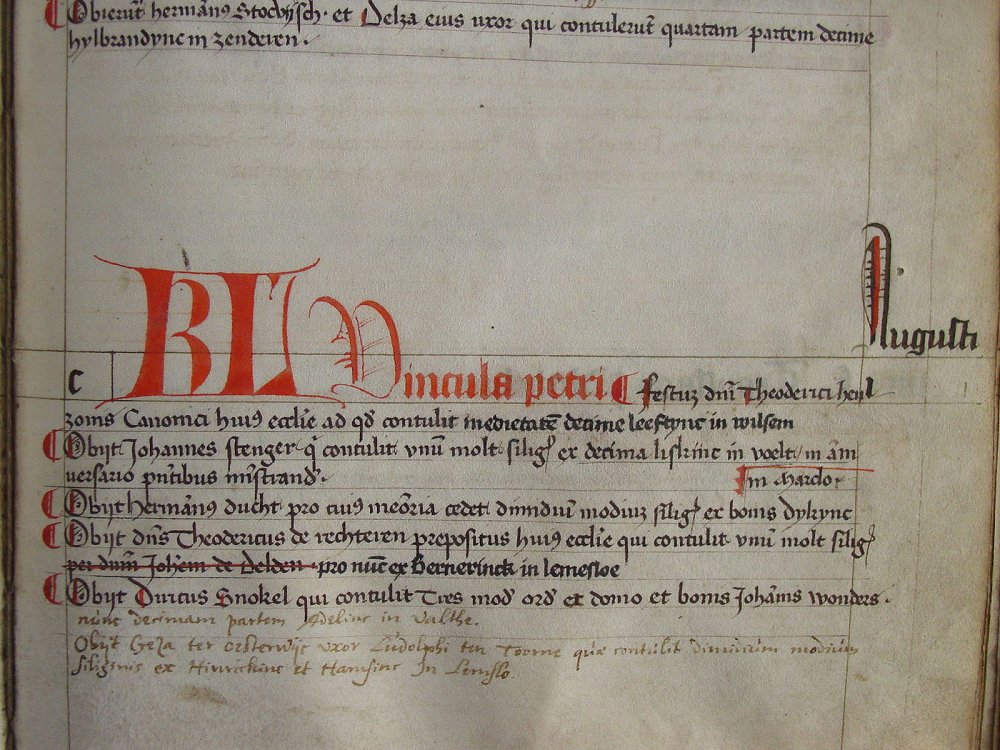 Obierūt hermān9 Stocvijsch · et Delza eius uxor qui contulerūt quartam partem decime
hylbrandync in zenderen ·
Augusti
c KL Vincula petri festuz dn̄i Theoderici heyl
zoms Canonici hui9 eccl̄ie ad qd̄ contulit medietatē decime leeftync in wilsem
Obijt Johannes stenger q̄ contulit vnū molt siliḡ ex decima liskinc in voelt in ām
uersario pn̄tibus mīstrand̄ ·
In Marclo ·
Obijt hermān9 ducht pro cui9 meōria cedet dimidiū modiuz siliḡ ex bonis dykync
Obijt dn̄s Theodericus de rechteren prepositus hui9 eccl̄ie qui contulit vnū molt siliḡ
per dnm̄ Joh̄em de Delden · pro nūc ex Bernerinck in lemesloe
Obijt Duricus Snokel qui contulit Tres mod̄ ord̄ ex domo et bonis Joh̄ānis wonders ·
nunc decimam partem Adelinc in Valthe.
Obijt Geza ter oesterwijc vxor Ludolphi ten Toorne quae contulit dimidium modium
siliginis ex Hinrickinc et Hamsinc In Lemslo.